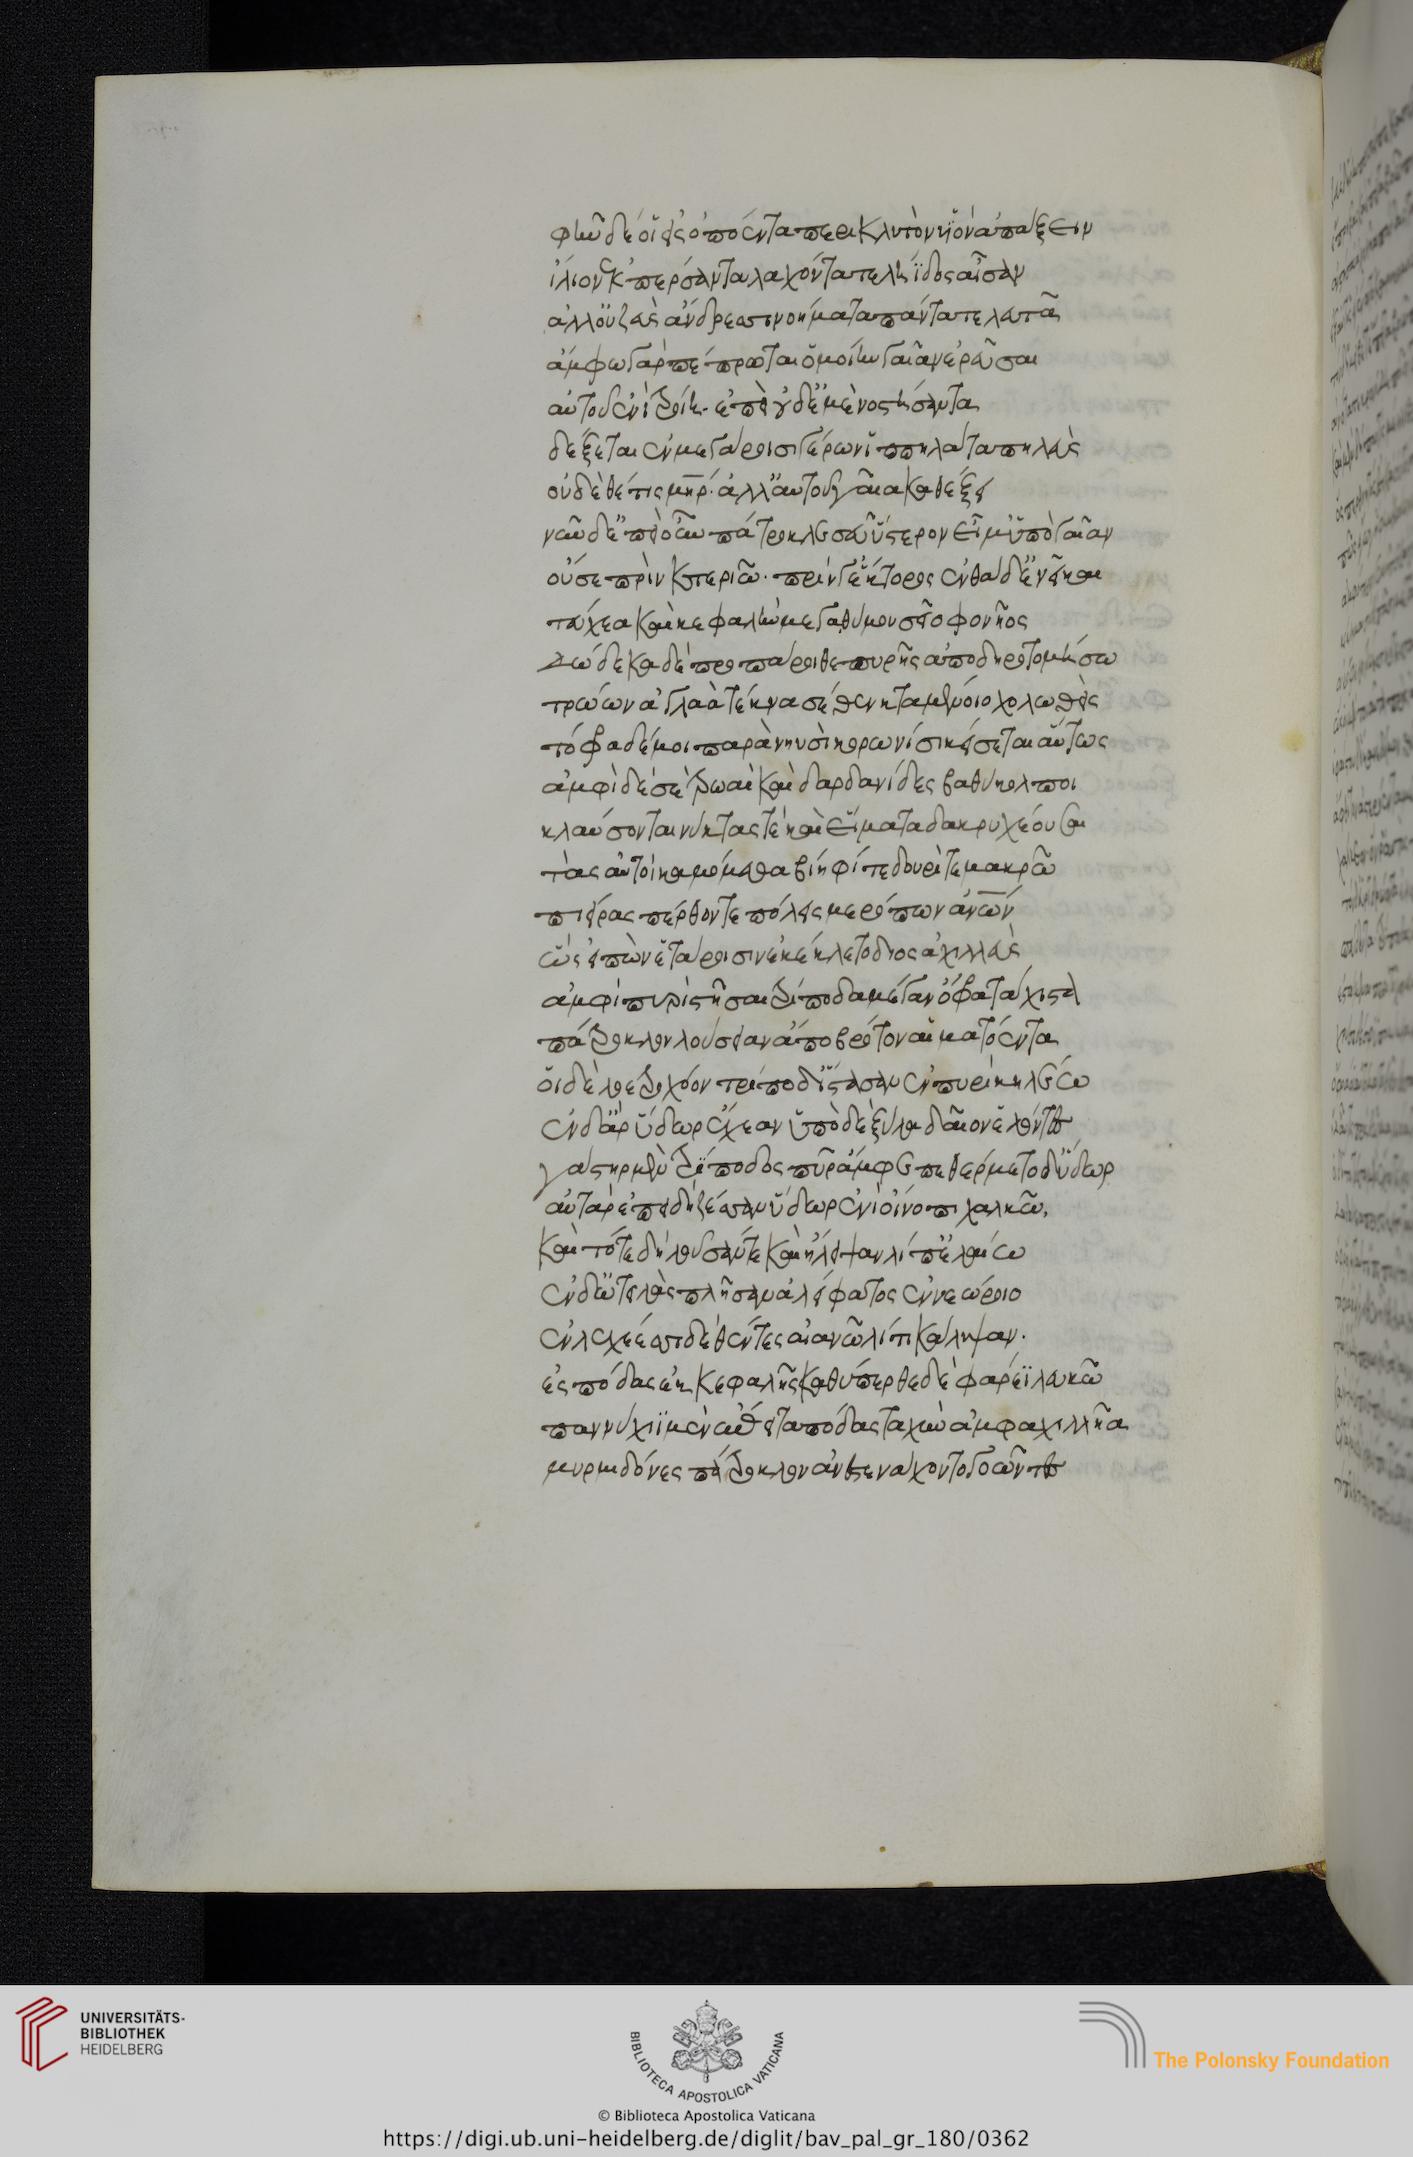 φῆν δέ οἱ εἰς ὀπόεντα περικλυτὸν υἱὸν ἀπάξειν
ἴλιον ἐκπέρσαντα λαχόντα τε ληΐδος αἶσαν
ἀλλ' οὐ ζεὺς ἄνδρεσσι νοήματα πάντα τελευτᾶ
ἄμφω γὰρ πέπρωται ὁμοίην γαῖαν ἐρεῦσαι
αὐτοῦ ἐνὶ τροίη. ἐπεὶ οὐδ' ἐμὲ νοστήσαντα
δέξεται ἐν μεγάροισι γέρων ἱππηλάτα πηλεὺς
οὐδὲ θέτις μηρ. ἀλλ' αὐτοῦ γαῖα καθέξει
νῦν δ' ἐπεὶ οὖν πάτροκλε σεῦ ὕστερον εἶμ' ὑπὸ γαῖαν
οὔ σε πρὶν κτεριῶ. πρίν γ' ἕκτορος ἐνθάδ' ἐνεῖκαι
τεύχεα καὶ κεφαλὴν μεγαθύμου σεῖο φονῆος
δώδεκα δὲ προπάροιθε πυρῆς ἀποδηροτομήσω
τρώων ἀγλαὰ τέκνα σέθεν κταμένοιο χολωθεὶς
τόφρα δέ μοι παρὰ νηυσὶ κορωνίσι κείσεται αὔτως
ἀμφὶ δὲ σὲ τρωαὶ καὶ δαρδανίδες βαθύκολποι
κλαύσονται νύκτας τὲ καὶ εἵματα δακρυχέουσαι
τὰς αὐτοὶ καμόμεσθα βίηφί τε δουρί τε μακρῶ
πιείρας πέρθοντε πόλεις μερόπων ἀνων
ὣς εἰπὼν ἑτάροισιν ἐκέκλετο δῖος ἀχιλλεὺς
ἀμφὶ πυρὶ στῆσαι τρίποδα μέγαν ὄφρα τάχιστα
πάτροκλον λούσειαν ἄπο βρότον αἱματόεντα
οἱ δὲ λοετροχόον τρίποδ' ἵστασαν ἐν πυρὶ κηλέω
ἐν δ' ἄρ' ὕδωρ ἔχεαν ὑπὸ δὲ ξύλα δαῖον ἑλόντες
γάστρην μὲν τρίποδος πῦρ ἄμφεπε θέρμετο δ' ὕδωρ
αὐτὰρ ἐπειδὴ ζέσσεν ὕδωρ ἐνὶ οἴνοπι χαλκῶ,
καὶ τότε δὴ λοῦσάν τε καὶ ἤλειψαν λίπ' ἐλαίω
ἐν δ' ὠτειλὰς πλῆσαν ἀλείφατος ἐννεώροιο
ἐν λεχέεσσι δὲ θέντες αἰανῶ λιτὶ κάλυψαν.
ἐς πόδας ἐκ κεφαλῆς καθύπερθε δὲ φάρεϊ λευκῶ
παννύχιοι μὲν ἔπειτα πόδας ταχὺν ἀμφ' ἀχιλλῆα
μυρμιδόνες πάτροκλον ἀνεστενάχοντο γοῶντες
UNIVERSITÄTS-
BIBLIOTHEK
HEIDELBERG
BIBLIOTECA APOSTOLICA VATICANA
The Polonsky Foundation
© Biblioteca Apostolica Vaticana
https://digi.ub.uni-heidelberg.de/diglit/bav_pal_gr_180/0362